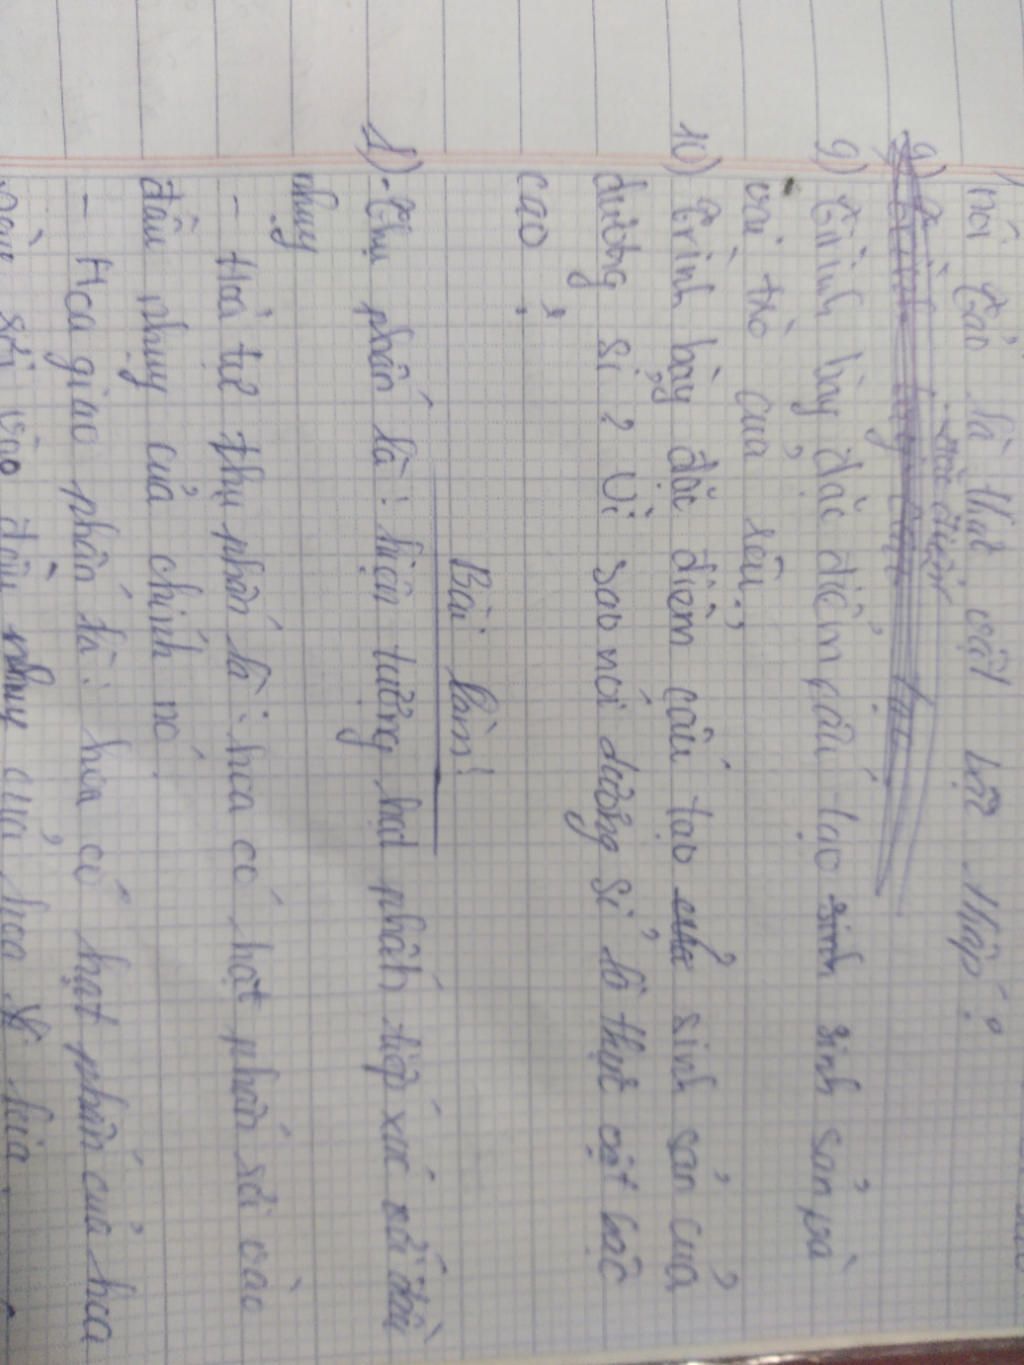 nói Tảo là thực vật bậc thấp?
9) Trình bày đặc điểm cấu tạo sinh sản và
vai trò của rêu?
10) Trình bày đặc điểm cấu tạo sinh sản của
dương sỉ? Vì sao nói dương sỉ là thực vật bậc
cao?
Bài làm!
1) - Thụ phấn là: hiện tượng hạt phấn tiếp xúc với đầu
nhụy
- Hoa tự thụ phấn là: hoa có hạt phấn rơi vào
đầu nhụy của chính nó.
- Hoa giao phấn là: hoa có hạt phấn của hoa
này rơi vào đầu nhụy của hoa kia.